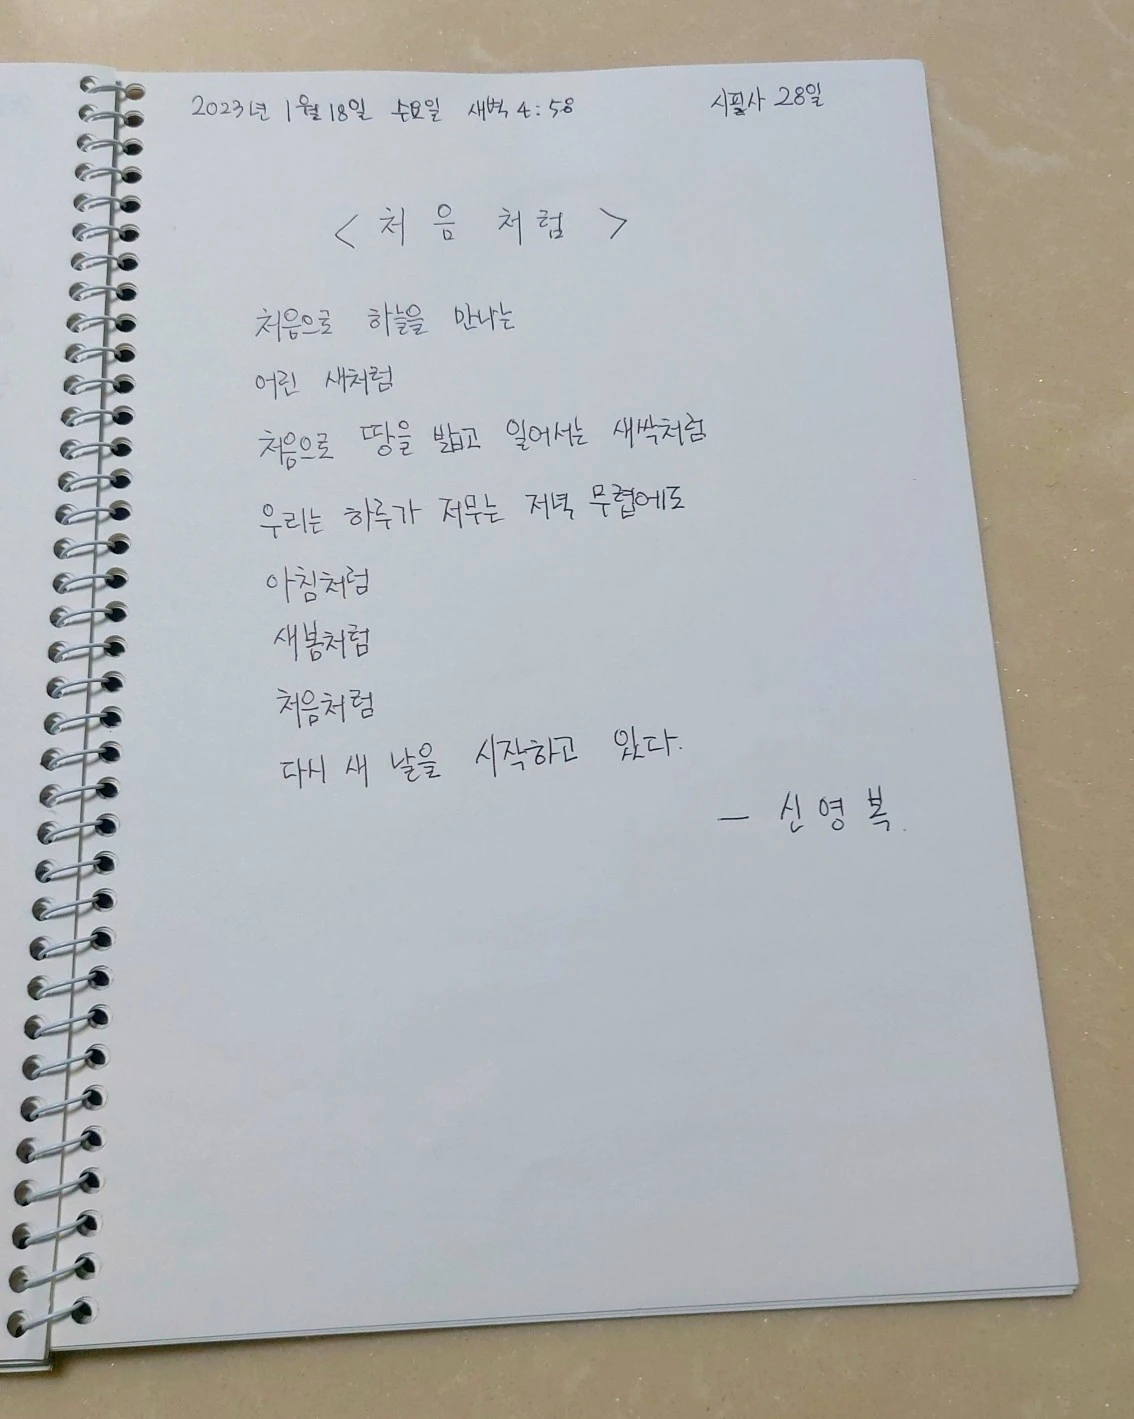 2023년 1월 18일 수요일 새벽 4:58 시필사 28일
<처음 처럼>
처음으로 하늘을 만나는
어린 새처럼
처음으로 땅을 밟고 일어서는 새싹처럼
우리는 하루가 저무는 저녁 무렵에도
아침처럼
새봄처럼
처음처럼
다시 새 날을 시작하고 있다.
— 신영복.